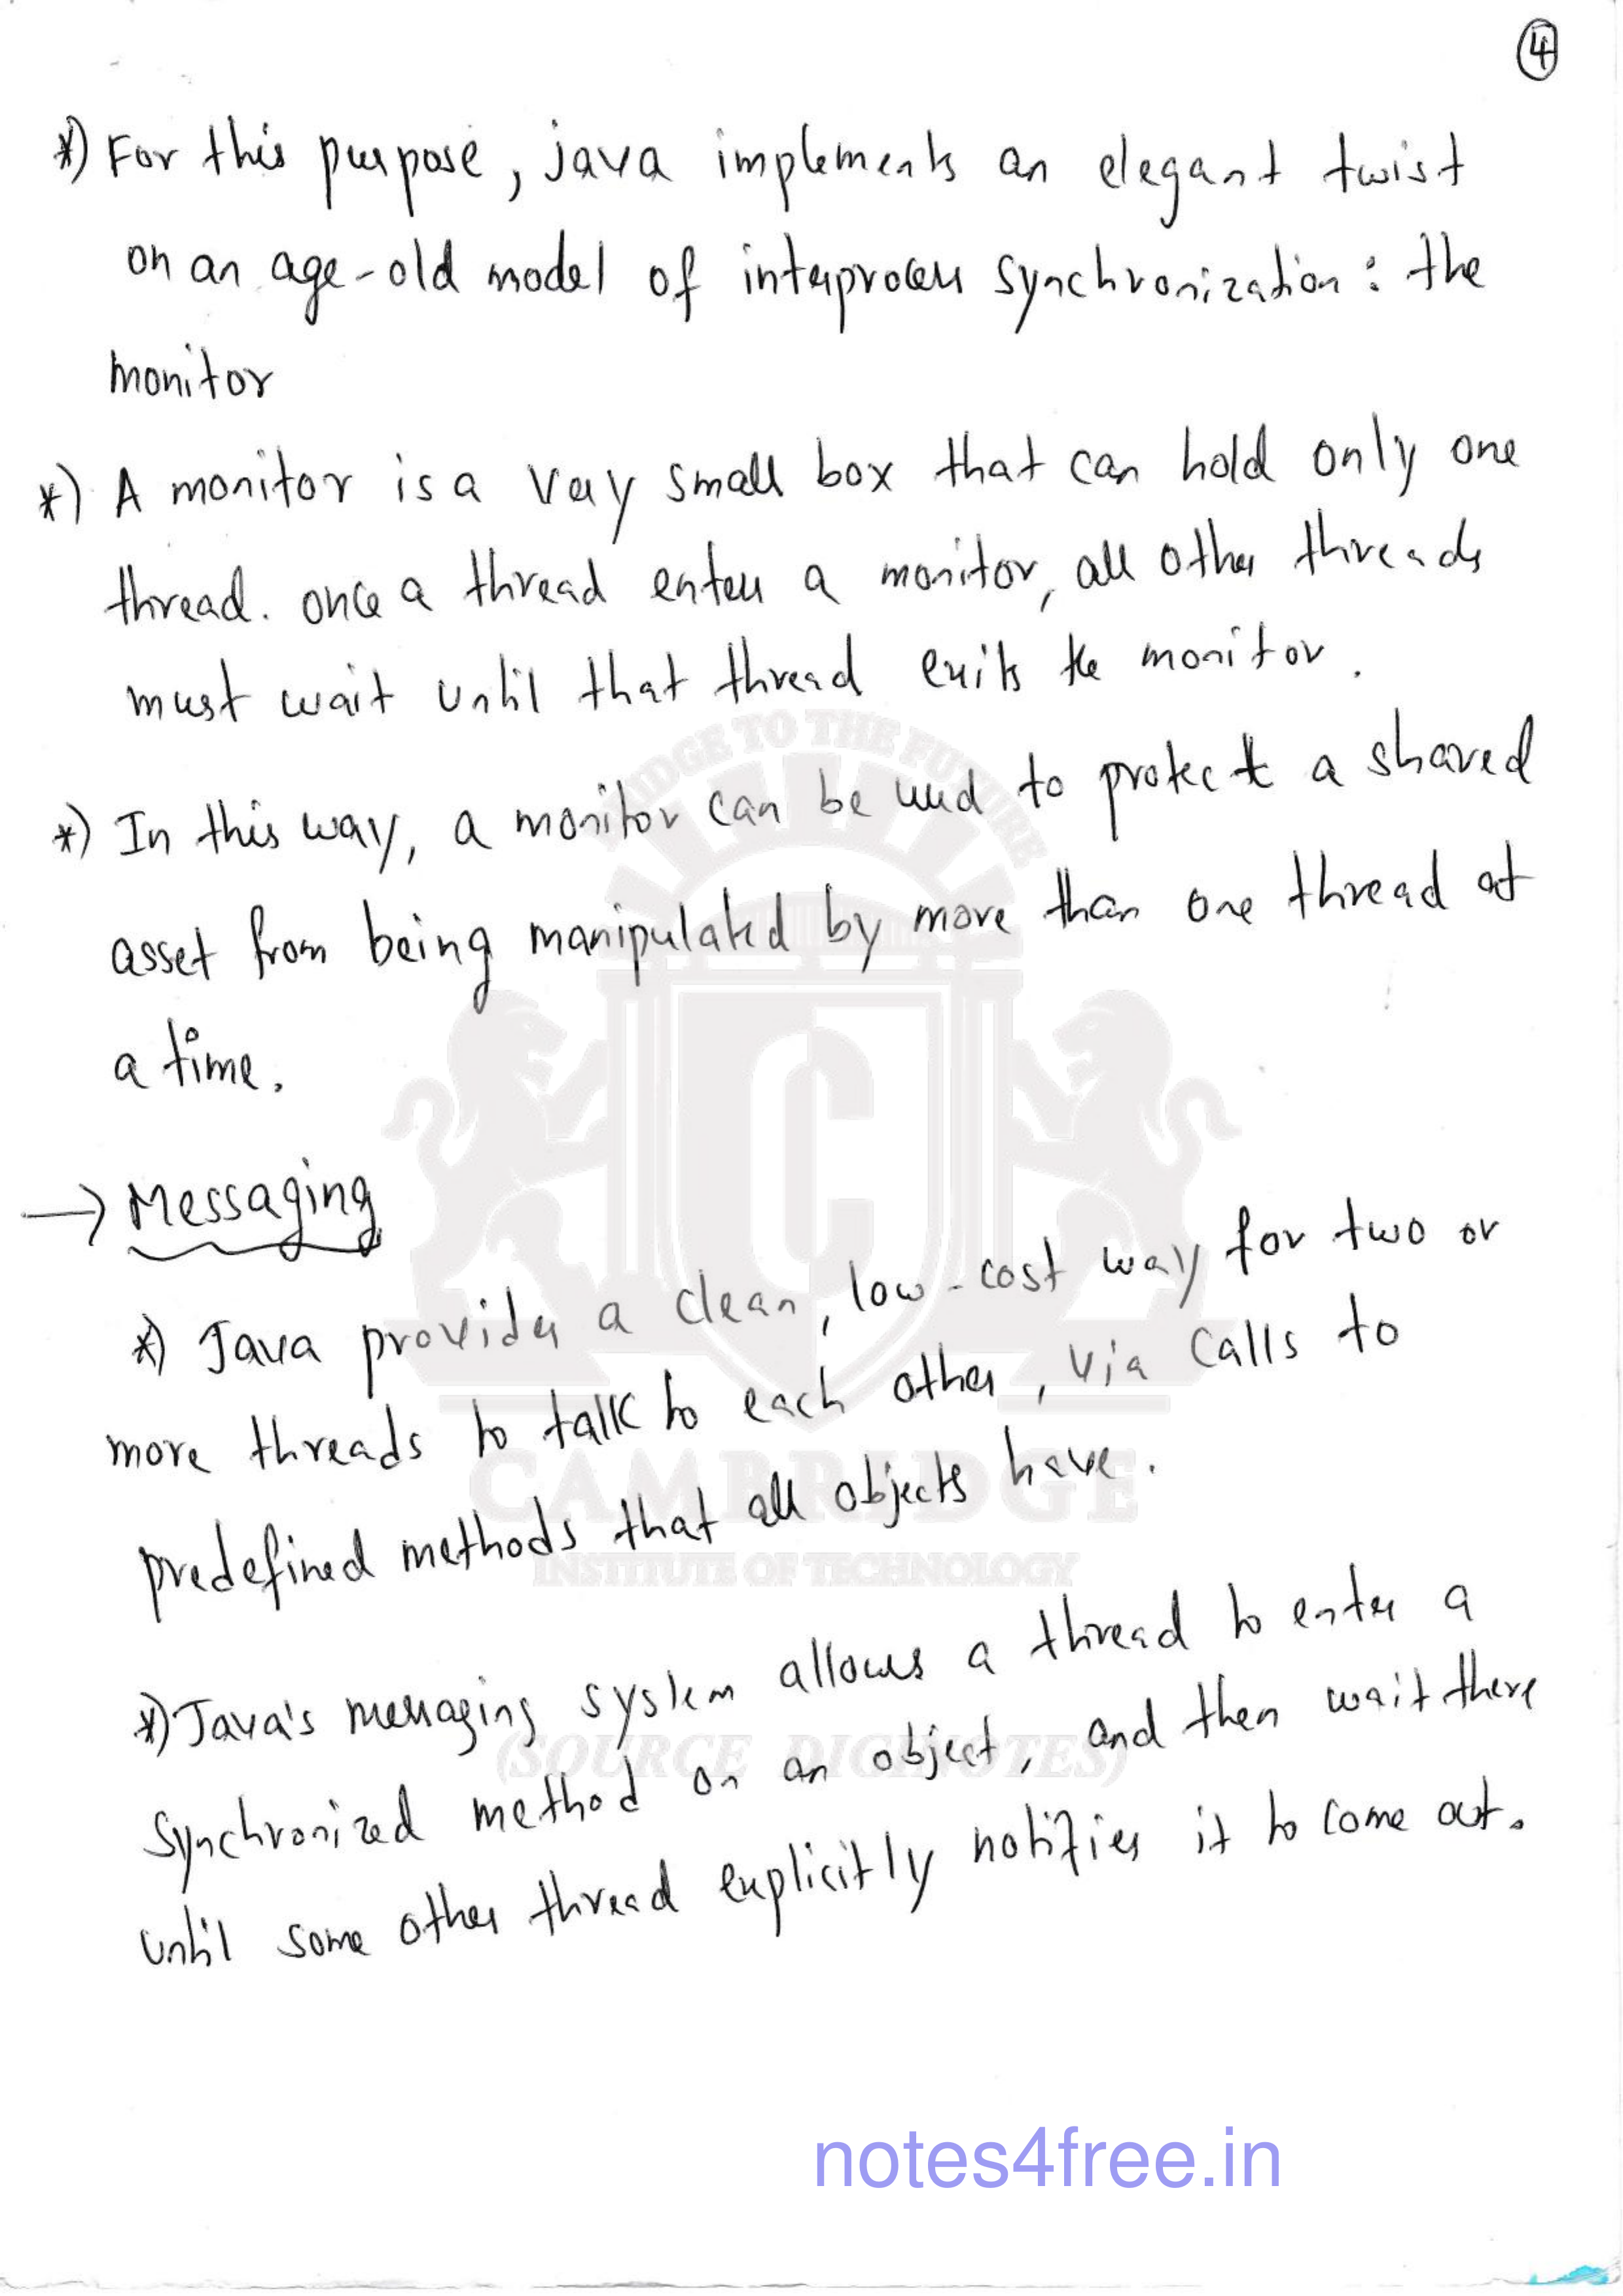 4
*) For this purpose, java implements an elegant twist
on an age-old model of interprocess synchronization : the
monitor
*) A monitor is a very small box that can hold only one
thread. once a thread enters a monitor, all other threads
must wait until that thread exits the monitor.
*) In this way, a monitor can be used to protect a shared
asset from being manipulated by more than one thread at
a time.
→ Messaging
*) Java provides a clean, low-cost way for two or
more threads to talk to each other, via calls to
predefined methods that all objects have.
*) Java's messaging system allows a thread to enter a
synchronized method on an object, and then wait there
until some other thread explicitly notifies it to come out.
BRIDGE TO THE FUTURE
C
CAMBRIDGE
INSTITUTE OF TECHNOLOGY
(SOURCE DIGINOTES)
notes4free.in